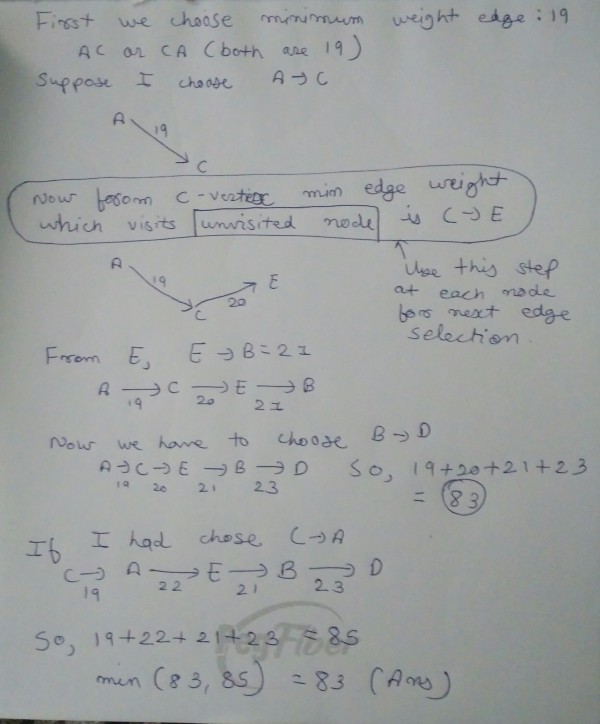 First we choose minimum weight edge : 19
AC or CA (both are 19)
Suppose I choose A → C
A 19 C
Now from C-vertex min edge weight
which visits unvisited node is C → E
A 19 C 20 E
Use this step
at each node
for next edge
selection.
From E, E → B = 21
A → C → E → B
19 20 21
Now we have to choose B → D
A → C → E → B → D So, 19+20+21+23
19 20 21 23 = 83
If I had chose C → A
C → A → E → B → D
19 22 21 23
So, 19+22+21+23 = 85
min (83, 85) = 83 (Ans)